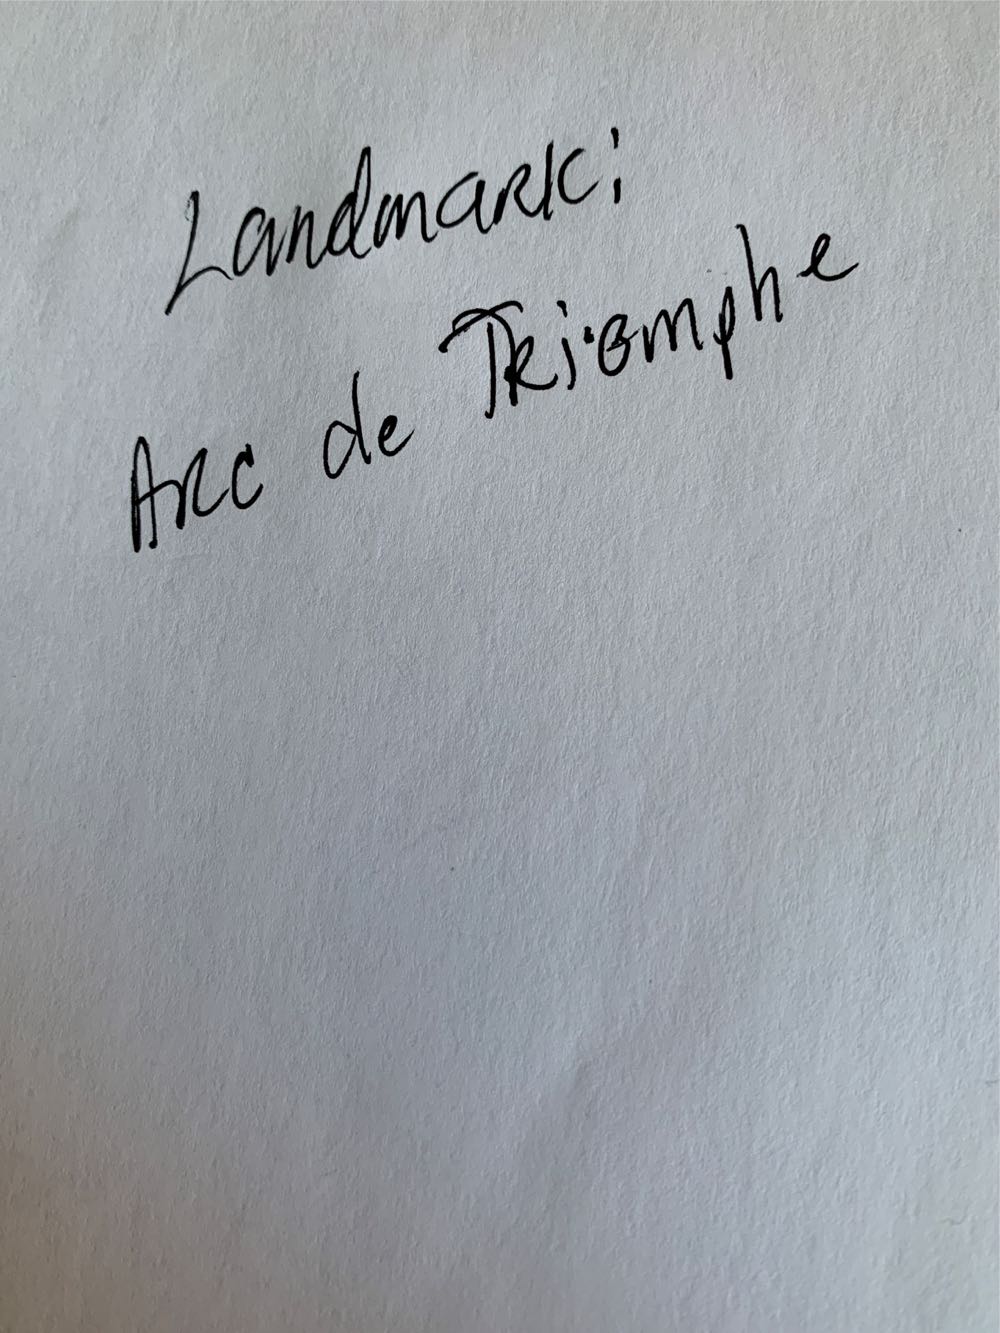 Landmark:
Arc de Triomphe